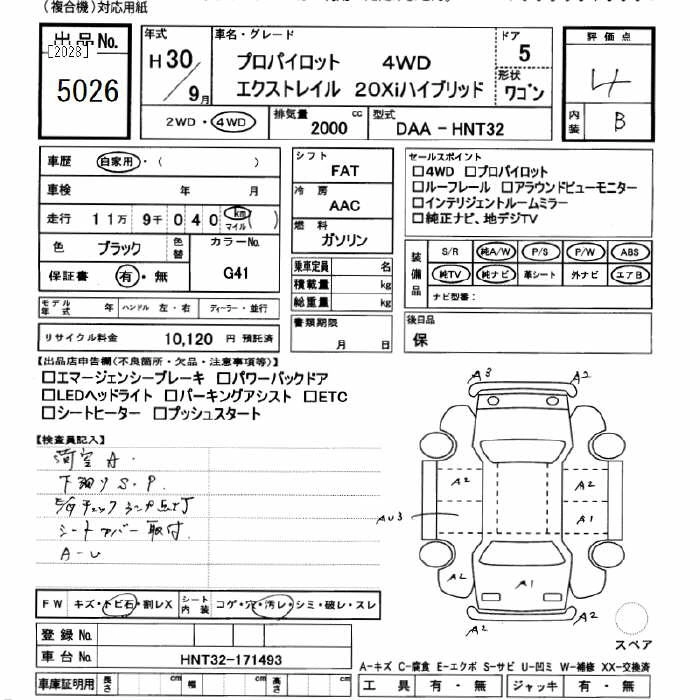 （複合機）対応用紙
出品No.
[2028]
5026
年式
H30
／9月
車名・グレード
プロパイロット 4WD
エクストレイル 20Xiハイブリッド
ドア
5
形状
ワゴン
評価点
4
内装
B
2WD・4WD
排気量
2000 cc
型式
DAA－HNT32
車歴 自家用・（ ）
車検 年 月
走行 11万 9千 040 km マイル( )
色 ブラック 色替
カラーNo.
G41
保証書 有・無
シフト
FAT
冷房
AAC
燃料
ガソリン
乗車定員 名
積載量 kg
総重量 kg
書類期限
月 日
セールスポイント
□4WD □プロパイロット
□ルーフレール □アラウンドビューモニター
□インテリジェントルームミラー
□純正ナビ、地デジTV
装備品
S/R 純A/W P/S P/W ABS
純TV 純ナビ 革シート 外ナビ エアB
ナビ型番：
後日品
保
モデル年式 年 ハンドル 左・右 ディーラー・並行
リサイクル料金 10,120 円 預託済
【出品店申告欄(不良箇所・欠品・注意事項等)】
□エマージェンシーブレーキ □パワーバックドア
□LEDヘッドライト □パーキングアシスト □ETC
□シートヒーター □プッシュスタート
【検査員記入】
荷室 A.
下廻り S.P.
チェックランプ点灯
シートカバー取付
A-U
A3 A2
A2 A2
AU3 A1
A2 A1 A2
A2 A2
スペア
FW キズ・トビ石・割レX シート内装 コゲ・穴・汚レ・シミ・破レ・スレ
登録No.
車台No. HNT32-171493
車庫証明用 長さ cm 幅 cm 高さ cm
A-キズ C-腐食 E-エクボ S-サビ U-凹ミ W-補修 XX-交換済
工具 有・無 ジャッキ 有・無